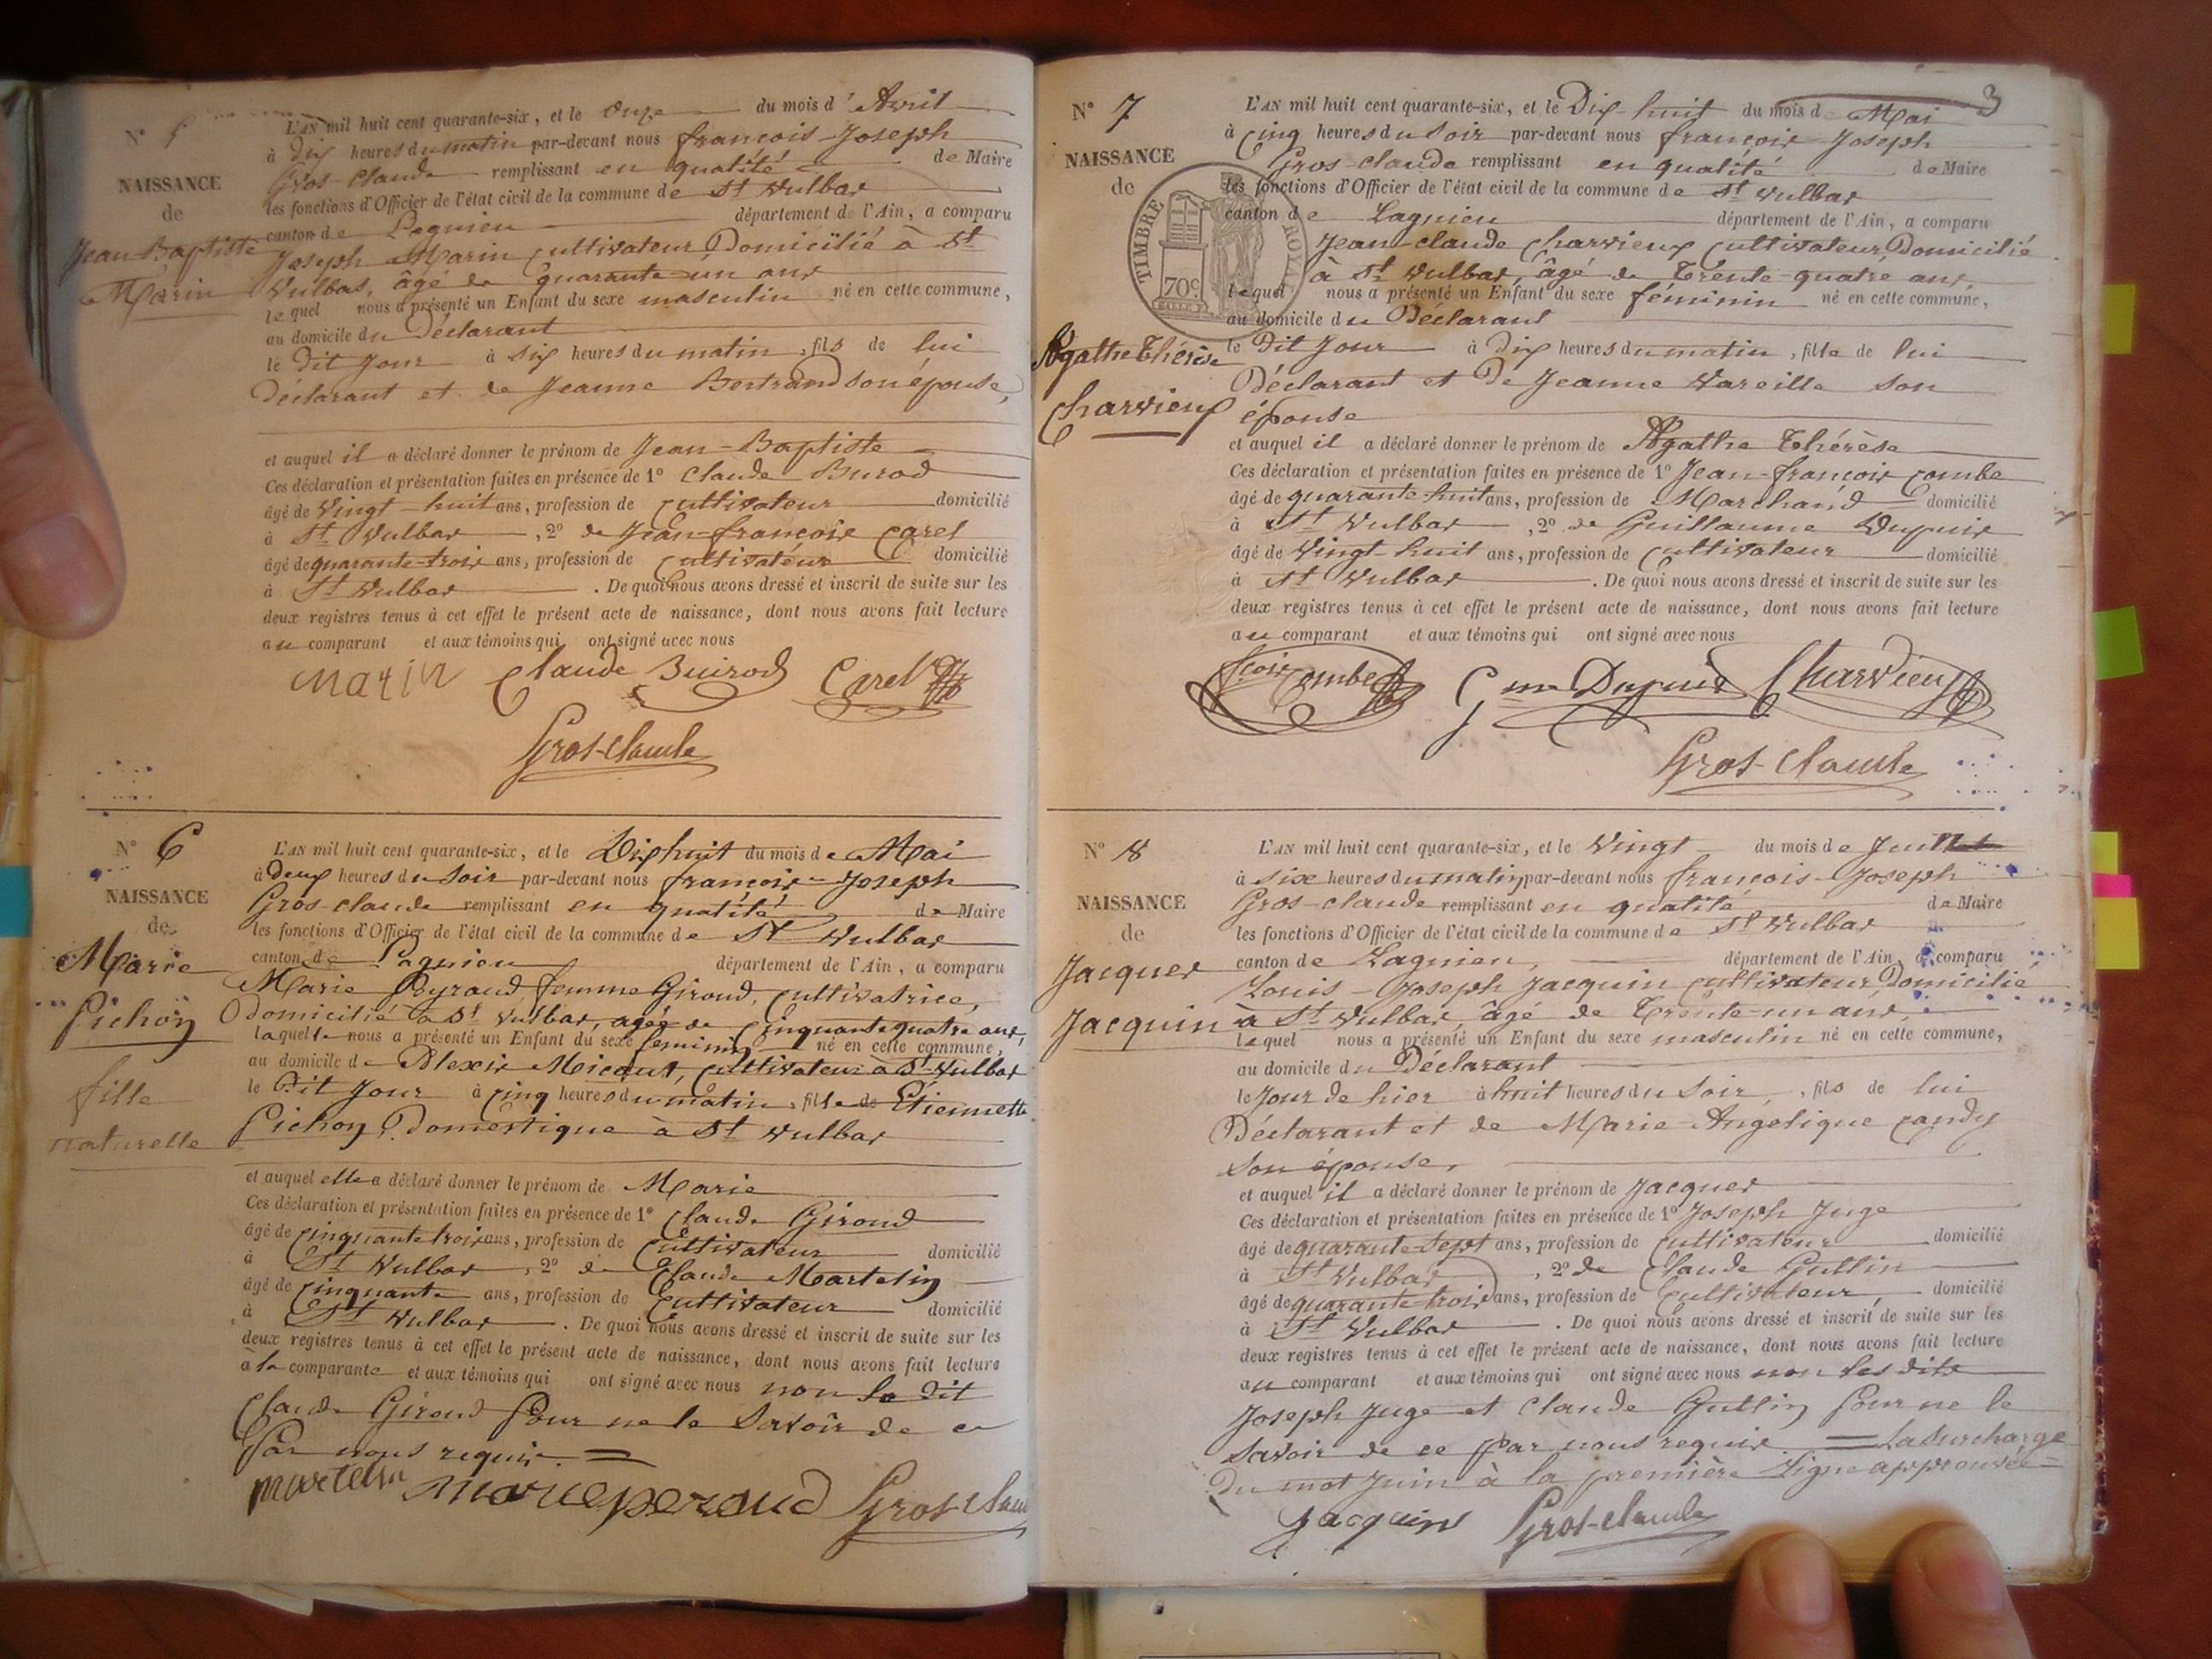 N° 5
NAISSANCE
de
Jean Baptiste
Marin
L'AN mil huit cent quarante-six, et le onze du mois d'Avril
à dix heures du matin par-devant nous françois-Joseph
Gros-claude remplissant en qualité de Maire
les fonctions d'Officier de l'état civil de la commune de St Vulbas
canton de Lagnieu département de l'Ain, a comparu
Joseph Marin cultivateur Domicilié à St
Vulbas, âgé de quarante-un ans
lequel nous a présenté un Enfant du sexe masculin né en cette commune,
au domicile du Déclarant
le dit Jour à six heures du matin, fils de lui
Déclarant et de Jeanne Bertrand son épouse,
et auquel il a déclaré donner le prénom de Jean-Baptiste
Ces déclaration et présentation faites en présence de 1° Claude Buirod
âgé de Vingt-huit ans, profession de cultivateur domicilié
à St Vulbas, 2° de Jean-françois Carel
âgé de quarante-trois ans, profession de cultivateur domicilié
à St Vulbas. De quoi nous avons dressé et inscrit de suite sur les
deux registres tenus à cet effet le présent acte de naissance, dont nous avons fait lecture
au comparant et aux témoins qui ont signé avec nous
Marin Claude Buirod Carel
Gros-claude
N° 6
NAISSANCE
de
Marie
Pichon
fille
naturelle
L'AN mil huit cent quarante-six, et le Dix huit du mois de Mai
à deux heures du Soir par-devant nous françois-Joseph
Gros-claude remplissant en qualité de Maire
les fonctions d'Officier de l'état civil de la commune de St Vulbas
canton de Lagnieu département de l'Ain, a comparu
Marie Pyraud femme Giroud, cultivatrice,
Domicilié à St Vulbas, agée de cinquante quatre ans,
laquelle nous a présenté un Enfant du sexe féminin né en cette commune,
au domicile de Alexis Micaut, cultivateur à St Vulbas
le dit Jour à cinq heures du matin, fille de Etiennette
Pichon Domestique à St Vulbas
et auquel elle a déclaré donner le prénom de Marie
Ces déclaration et présentation faites en présence de 1° Claude Giroud
âgé de cinquante trois ans, profession de cultivateur domicilié
à St Vulbas, 2° de Claude Martelin
âgé de cinquante ans, profession de cultivateur domicilié
à St Vulbas. De quoi nous avons dressé et inscrit de suite sur les
deux registres tenus à cet effet le présent acte de naissance, dont nous avons fait lecture
à la comparante et aux témoins qui ont signé avec nous non le dit
Claude Giroud Pour ne le Savoir de ce
Par nous requis =
martelin marie peraud Gros-clau
3
N° 7
NAISSANCE
de
TIMBRE ROYAL
70c.
Agathe Thérèse
Charvieux
L'AN mil huit cent quarante-six, et le Dix-huit du mois de Mai
à cinq heures du Soir par-devant nous françois-Joseph
Gros-claude remplissant en qualité de Maire
les fonctions d'Officier de l'état civil de la commune de St Vulbas
canton de Lagnieu département de l'Ain, a comparu
Jean-claude Charvieux cultivateur Domicilié
à St Vulbas, âgé de Trente-quatre ans,
lequel nous a présenté un Enfant du sexe féminin né en cette commune,
au domicile du Déclarant
le dit Jour à dix heures du matin, fille de lui
Déclarant et De Jeanne Vareille son
épouse
et auquel il a déclaré donner le prénom de Agathe Thérèse
Ces déclaration et présentation faites en présence de 1° Jean-françois Combe
âgé de quarante-huit ans, profession de Marchand domicilié
à St Vulbas, 2° de Guillaume Dupuis
âgé de Vingt-huit ans, profession de cultivateur domicilié
à St Vulbas. De quoi nous avons dressé et inscrit de suite sur les
deux registres tenus à cet effet le présent acte de naissance, dont nous avons fait lecture
au comparant et aux témoins qui ont signé avec nous
fcois Combe Gme Dupuis Charvieux
Gros-claude
N° 8
NAISSANCE
de
Jacques
Jacquin
L'AN mil huit cent quarante-six, et le Vingt du mois de Juin
à six heures du matin par-devant nous françois-Joseph
Gros-claude remplissant en qualité de Maire
les fonctions d'Officier de l'état civil de la commune de St Vulbas
canton de Lagnieu, département de l'Ain, a comparu
Louis-Joseph Jacquin cultivateur Domicilié
à St Vulbas, âgé de Trente-un ans,
lequel nous a présenté un Enfant du sexe masculin né en cette commune,
au domicile du Déclarant
le Jour de hier à huit heures du Soir, fils de lui
Déclarant et de Marie-Angelique Candy
son épouse,
et auquel il a déclaré donner le prénom de Jacques
Ces déclaration et présentation faites en présence de 1° Joseph Juge
âgé de quarante-sept ans, profession de cultivateur domicilié
à St Vulbas, 2° de Claude Guttin
âgé de quarante trois ans, profession de cultivateur, domicilié
à St Vulbas. De quoi nous avons dressé et inscrit de suite sur les
deux registres tenus à cet effet le présent acte de naissance, dont nous avons fait lecture
au comparant et aux témoins qui ont signé avec nous non les dits
Joseph Juge et Claude Guttin Pour ne le
Savoir de ce Par nous requis = La Surcharge
Du mot Juin à la première Ligne approuvée =
Jacquin Gros-claude